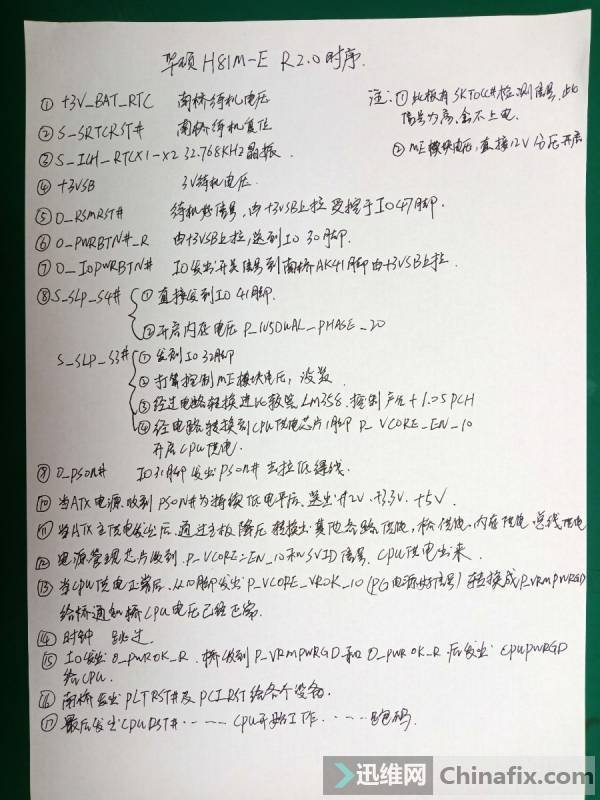 华硕 H81M-E R2.0时序.
① +3V_BAT_RTC 南桥待机电压
② S_SRTCRST# 南桥待机复位
③ S_ICH_RTCX1-X2 32.768KHZ晶振.
④ +3VSB 3V待机电压.
⑤ O_RSMRST# 待机好信号,由+3VSB上拉 受控于IO47脚.
⑥ O_PWRBTN#_R 由+3VSB上拉,送到IO 30脚.
⑦ O_IOPWRBTN# IO发出开关信号到南桥AK41脚由+3VSB上拉.
注: ① 此板有SKTOCC#检测信号,此
信号为高,会不上电.
② ME模块电压,直接12V分压开启
⑧ S_SLP_S4# ① 直接发到IO 41脚.
② 开启内存电压 P_1V5DUAL_PHASE_20
S_SLP_S3# ① 发到IO 32脚
② 打算控制ME模块电压,没装
③ 经过电路转换进比较器LM358.控制产生+1.05PCH
④ 经电路转换到CPU供电芯片1脚 P_VCORE_EN_10
开启CPU供电.
⑨ O_PSON# IO31脚发出PSON#去拉低绿线.
⑩ 当ATX电源收到PSON#为持续低电平后.送出+12V.+3.3V.+5V.
⑪ 当ATX主供电发出后.通过主板降压转换出其他各路供电,桥供电.内存供电.总线供电
⑫ 电源管理芯片收到 P_VCORE_EN_10和SVID信号.CPU供电出来.
⑬ 当CPU供电正常后.从10脚发出P_VCORE_VROK_10(PG电源好信号)转换成P_VRMPWRGD
给桥通知桥CPU电压已经正常.
⑭ 时钟 跳过.
⑮ IO发出O_PWROK_R.桥收到P_VRMPWRGD和O_PWROK_R后发出CPUPWRGD
给CPU.
⑯ 南桥发出PLTRST#及PCIRST给各个设备.
⑰ 最后发出CPURST#.----- CPU开始工作.---- 跑码.
迅维网 Chinafix.com